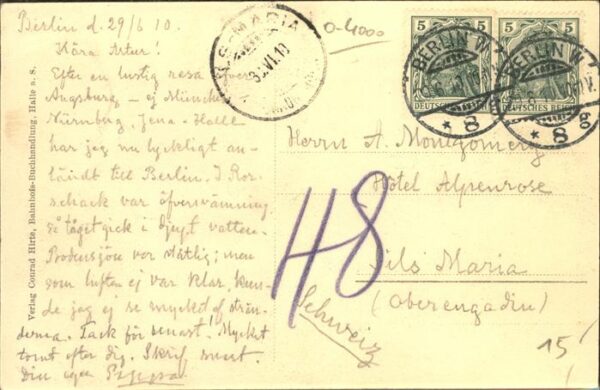 Berlin d. 29/6 10.
Kära Artur!
Efter en lustig resa öfver
Augsburg – ej München
Nürnburg, Jena – Halle
har jag nu lyckligt an-
ländt till Berlin. I Ror-
schack var öfversvämning
så tåget gick i djupt vatten.
Bodensjön var ståtlig; men
som luften ej var klar, kun-
de jag ej se mycket af strän-
derna. Tack för senast! Mycket
tomt efter dig. Skrif snart.
Din egen Pippa
Verlag Conrad Hirte, Bahnhofs-Buchhandlung, Halle a. S.
SILS-MARIA
VI.10
0-4000
5 5
DEUTSCHES REICH
BERLIN W
* 8
5 5
DEUTSCHES REICH
BERLIN W
* 8
Herrn A. Montgomery
Hôtel Alpenrose
Sils Maria
(Oberengadin)
Schweiz
48
15/